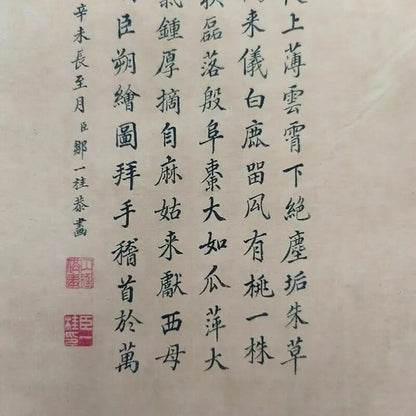 上薄雲霄下絕塵垢朱草
来儀白鹿畱有桃一株
磊落殷阜棗大如瓜萍大
鍾厚摘自麻姑来獻西母
臣朔繪圖拜手稽首於萬
辛未長至月臣鄒一桂恭畫